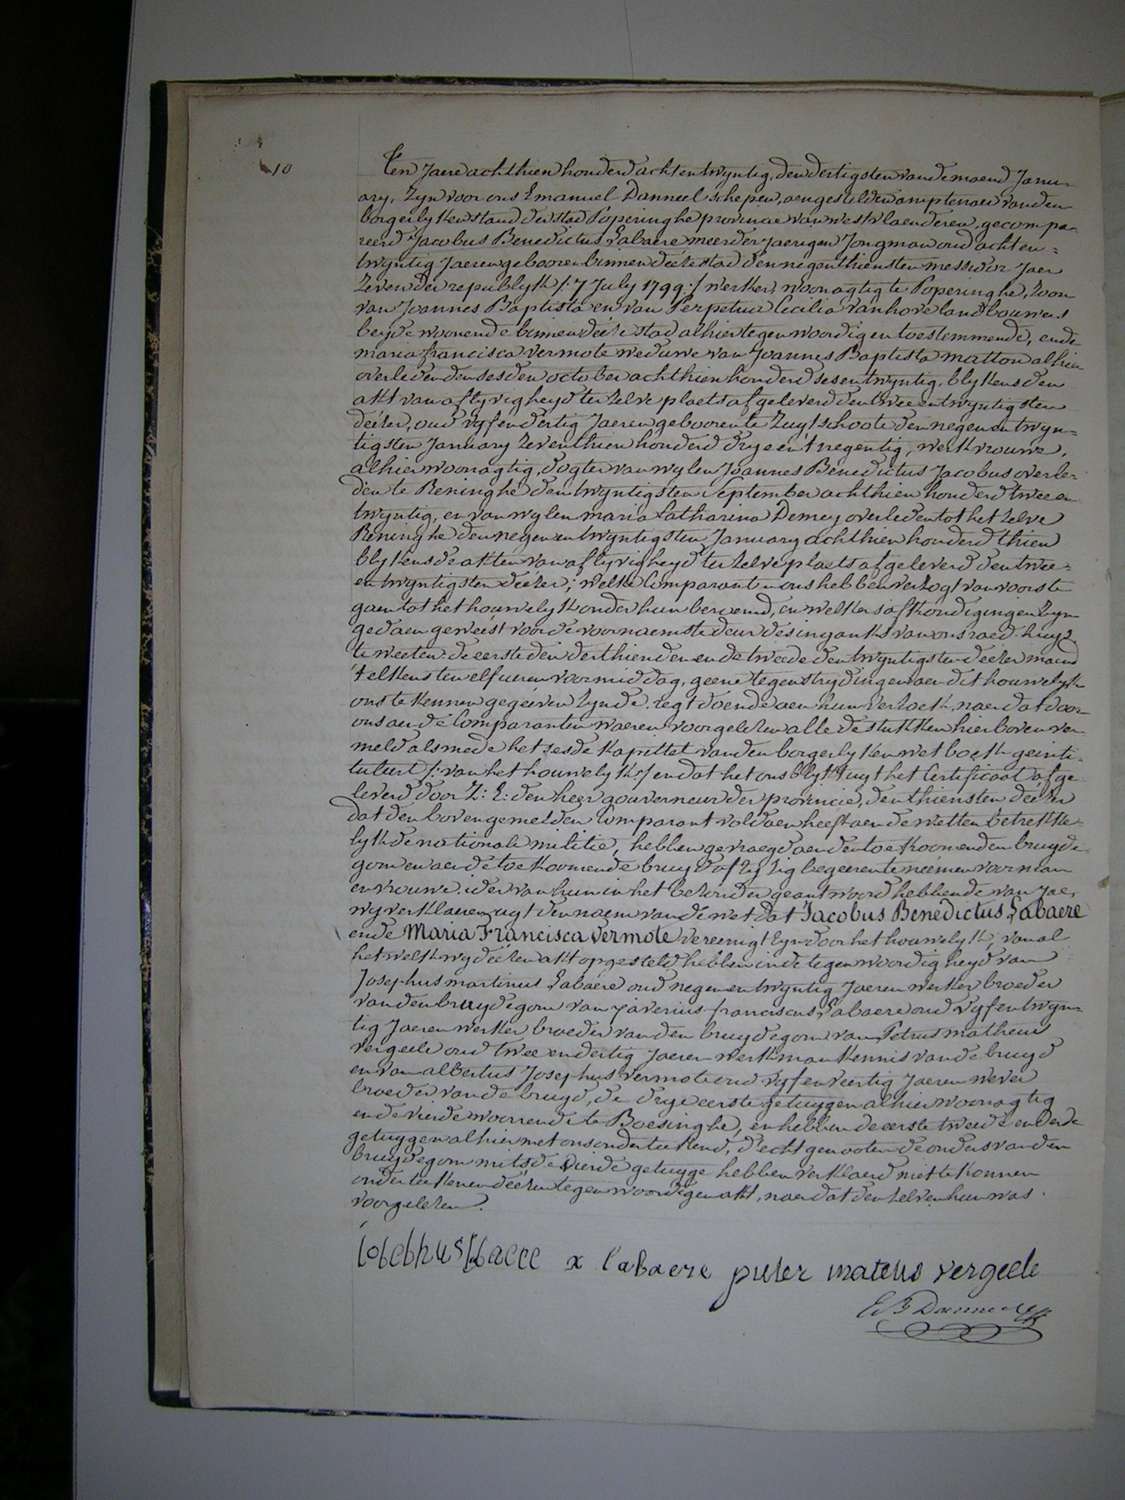 10
Ten Jaere achthien honderd acht en twyntig, den dertigsten van de maend Janu-
ary, zyn voor ons Emanuel Danneel schepen, aengestelden amptenaer van den
borgerlyken stand der stad Poperinghe provincie van westvlaenderen, gecompa-
reerd Jacobus Benedictus Labaere meerderjaerigen Jongman oud acht en
twyntig Jaeren gebooren binnen deéze stad den negenthiensten messidor Jaer
zeven der republyk /: 7 July 1799 :/ werker, woonagtig te Poperinghe, Zoon
van Joannes Baptista en van Perpetua Cecilia Vanhove landbouwers
beyde woonende binnen deéze stad alhier tegenwoordig en toestemmende, ende
maria francisca vermote weduwe van Joannes Baptista Matton alhier
overleden den sesden october achthien honderd ses en twyntig, blykens den
akt van aflyvigheyd ter zelve plaets afgeleverd den twee en twyntigsten
deézer, oud vyf en dertig Jaeren gebooren te Zuytschoote den negen en twyn-
tigsten January zeventhien honderd drye en t negentig, werkvrouwe,
alhier woonagtig, dogter van wylen Joannes Benedictus Jacobus overle-
den te Reninghe den twyntigsten September achthien honderd twee en
twyntig, en van wylen maria Catharina Demey overleden tot het zelve
Reninghe den negen en twyntigsten January achthien honderd thien
blykens de akten van aflyvigheyd ter zelve plaets afgeleverd den twee-
en twyntigsten deézer; welke Comparanten ons hebben verzogt van voorste
gaen tot het houwelyk onder hun beraemd, en welkers afkondigingen zyn
gedaen geweést voor de voornaemste deur des ingank van ons raed-huys
te weeten de eerste den derthienden en de tweede den twyntigsten deézer maend
telkens ten elf ueren voormiddag, geene tegenstrydingen aen dit houwelyk
ons te kennen gegeéven zynde, regt doende aen hun verzoek, naer dat door
ons aen de Comparanten waeren voorgelezen alle de stukken hierboven ver-
meld alsmede het sesde kapittel van den borgerlyken wetboek geinti-
tuleert /: van het houwelyk :/ en dat het ons blykt uyt het Certificaat afge-
leverd door Z: E: den heer gouverneur der provincie, den thiensten deézer
dat den bovengemelden Comparant voldaen heeft aen de wetten betrekke-
lyk de nationale militie, hebben gevraegd aen den toekoomenden bruyde-
gom en aen de toekoomende bruyd of zy zig begeeren te neémen voor man
en vrouwe: ider van hun in het bezonder geantwoord hebbende van Jae,
wy verklaeren uyt den naem van de wet dat Jacobus Benedictus Labaere
ende Maria Francisca vermote vereenigt zyn door het houwelyk, van al
het welk wy deézen akt opgesteld hebben in de tegenwoordigheyd van
Josephus martinus Labaere oud negen en twyntig Jaeren werker broeder
van den bruydegom van xaverius franciscus Labaere oud vyf en twyn-
tig Jaeren werker broeder van den bruydegom van Petrus matheus
vergeele oud twee en dertig Jaeren werkman kennis van de bruyd
en van albertus Josephus vermote oud vyf en veertig Jaeren wever
broeder van de bruyd, de drye eerste getuygen alhier woonagtig
ende vierde woonende te Boesinghe, en hebben de eerste tweede en derde
getuygen alhier met ons onderteekend, d'echtgenooten de onders van den
bruydegom mits de vierde getuyge hebben verklaerd niet te konnen
onderteekenen deézen tegenwoordigen akt, naer dat den zelven hun was
voorgelezen.
Josephus labaere x labaere pieter mateus vergeele
E. F. Danneel